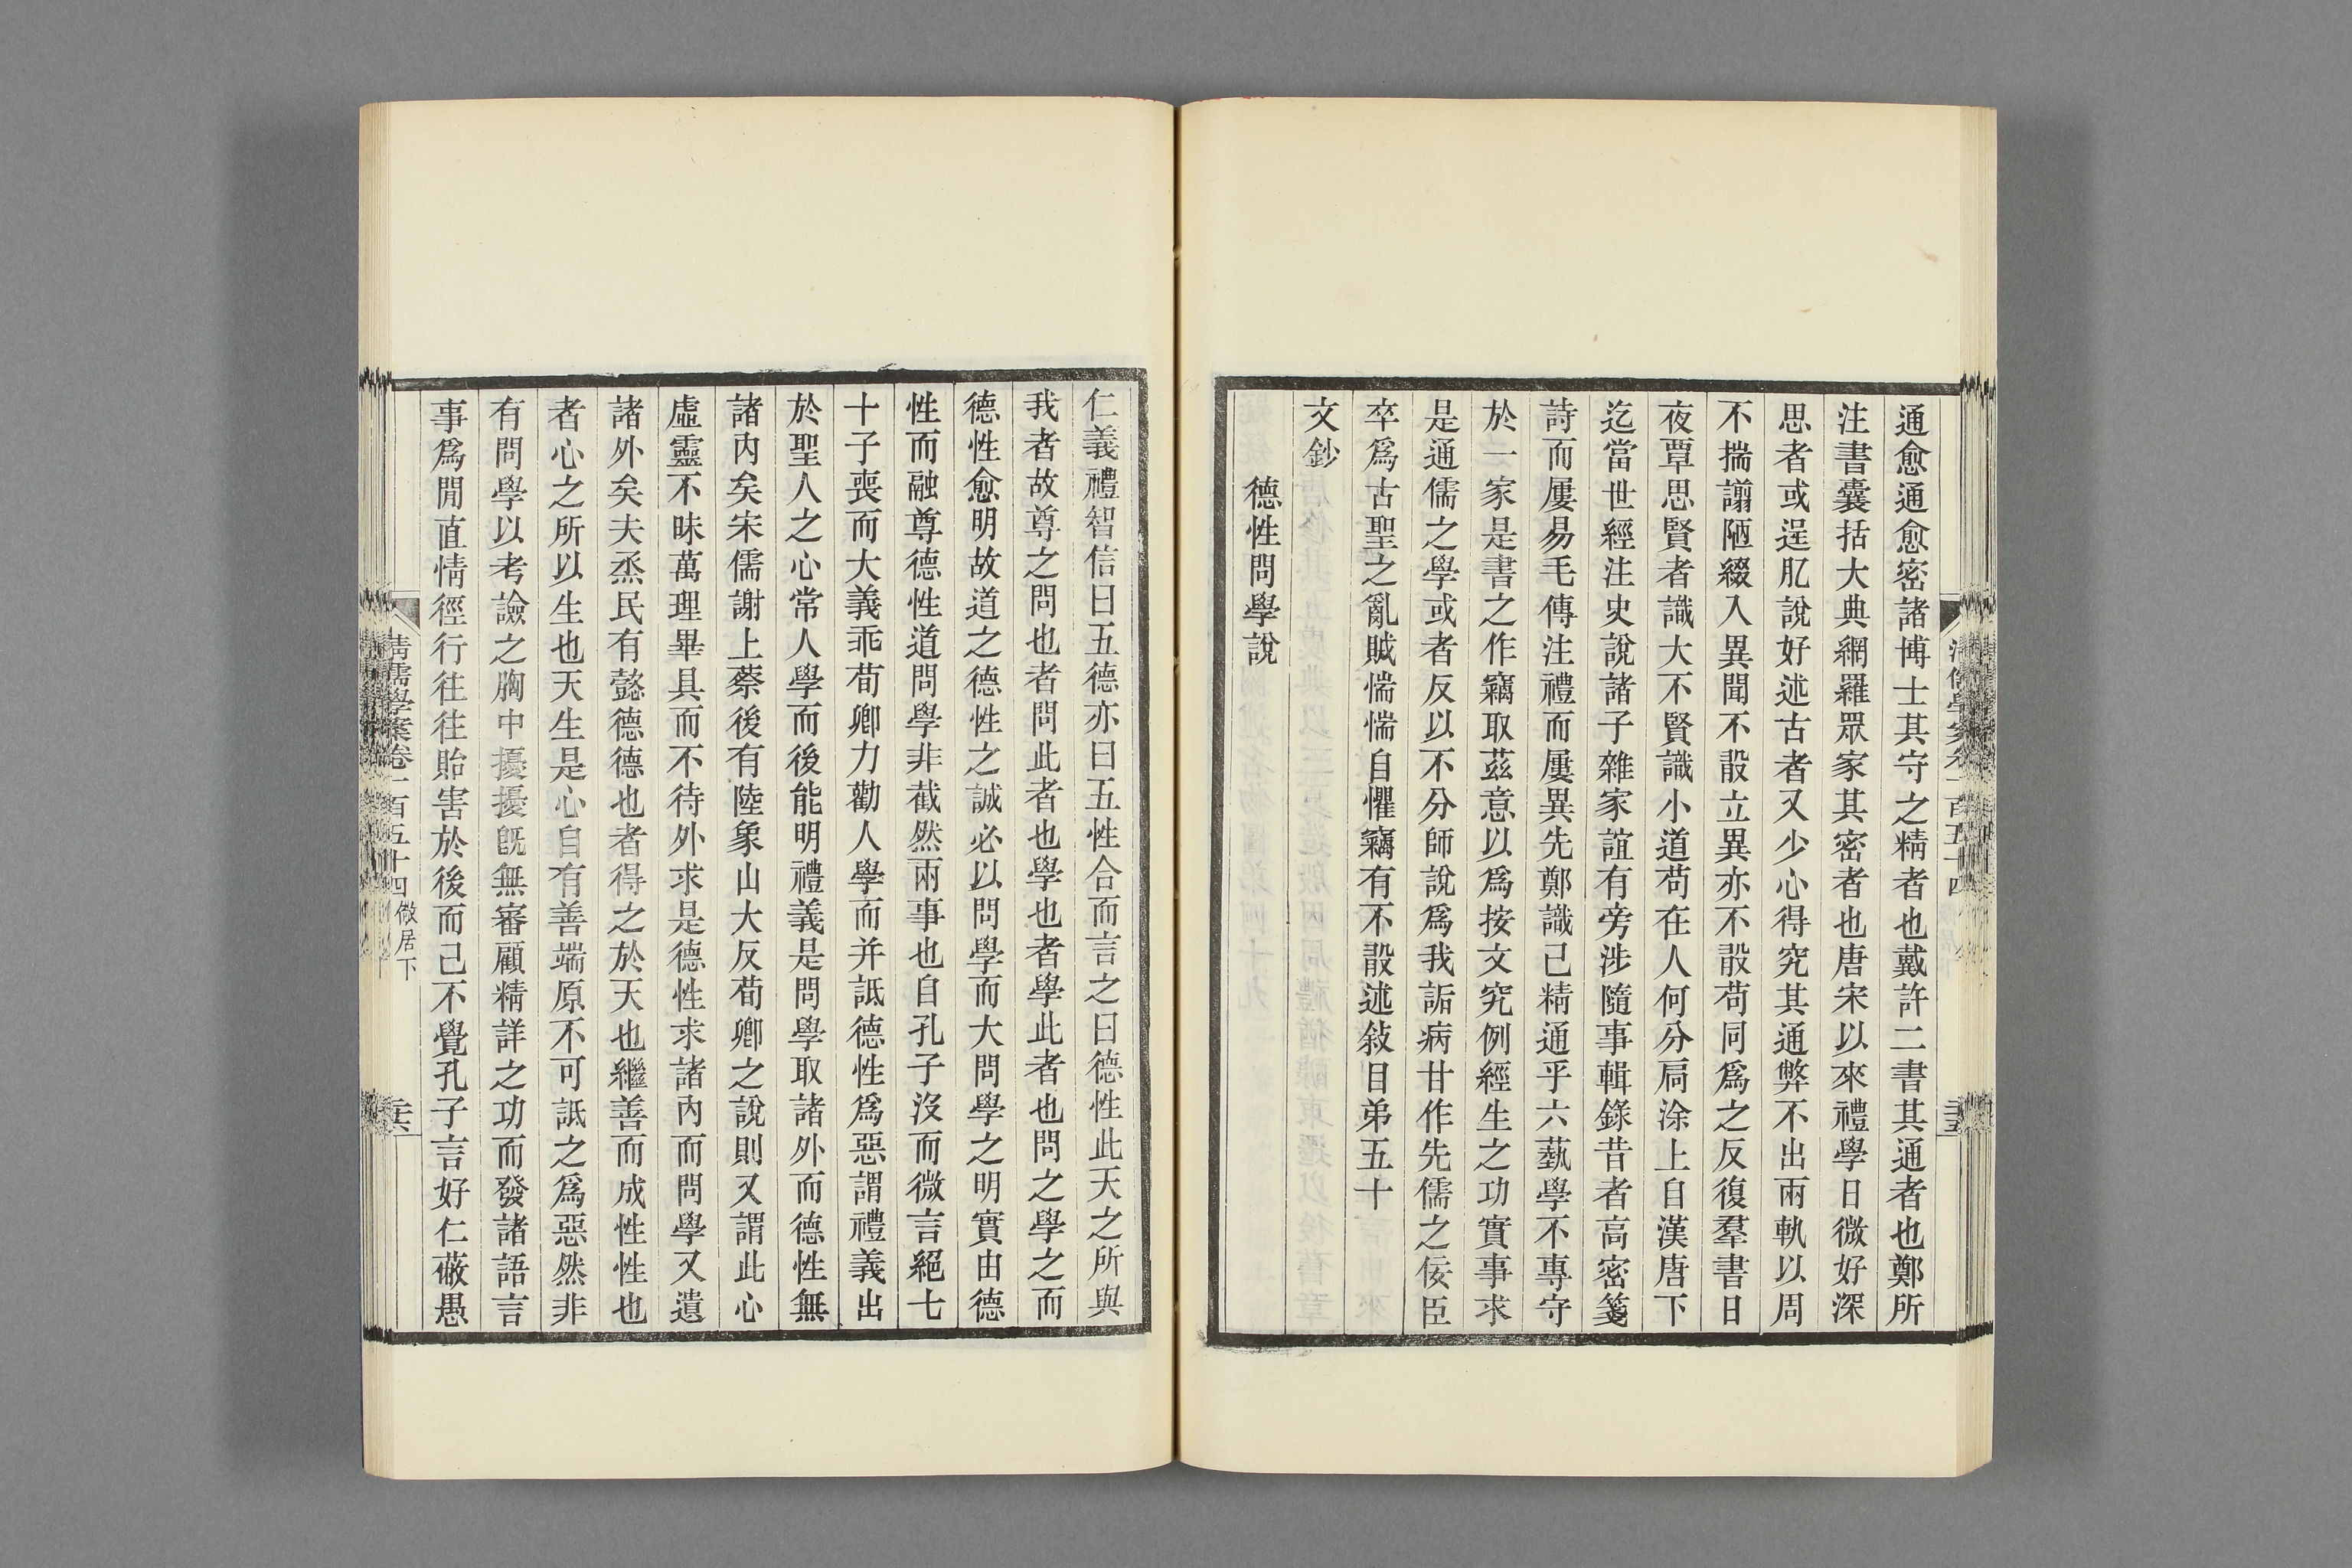 通愈通愈密諸博士其守之精者也戴許二書其通者也鄭所
注書囊括大典網羅眾家其密者也唐宋以來禮學日微好深
思者或逞肊說好述古者又少心得究其通弊不出兩軌以周
不揣譾陋綴入異聞不敢立異亦不敢苟同爲之反復羣書日
夜覃思賢者識大不賢識小道苟在人何分扃涂上自漢唐下
迄當世經注史說諸子雜家誼有旁涉隨事輯錄昔者高密箋
詩而屢易毛傳注禮而屢異先鄭識已精通乎六藝學不專守
於一家是書之作竊取茲意以爲按文究例經生之功實事求
是通儒之學或者反以不分師說爲我詬病甘作先儒之佞臣
卒爲古聖之亂賊惴惴自懼竊有不敢述敍目弟五十
文鈔
德性問學說
仁義禮智信曰五德亦曰五性合而言之曰德性此天之所與
我者故尊之問也者問此者也學也者學此者也問之學之而
德性愈明故道之德性之誠必以問學而大問學之明實由德
性而融尊德性道問學非截然兩事也自孔子沒而微言絕七
十子喪而大義乖荀卿力勸人學而并詆德性爲惡謂禮義出
於聖人之心常人學而後能明禮義是問學取諸外而德性無
諸內矣宋儒謝上蔡後有陸象山大反荀卿之說則又謂此心
虛靈不昧萬理畢具而不待外求是德性求諸內而問學又遺
諸外矣夫烝民有懿德德也者得之於天也繼善而成性性也
者心之所以生也天生是心自有善端原不可詆之爲惡然非
有問學以考譣之胸中擾擾旣無審顧精詳之功而發諸語言
事爲閒直情徑行往往貽害於後而己不覺孔子言好仁蔽愚
清儒學案卷一百五十四 儆居下
三六